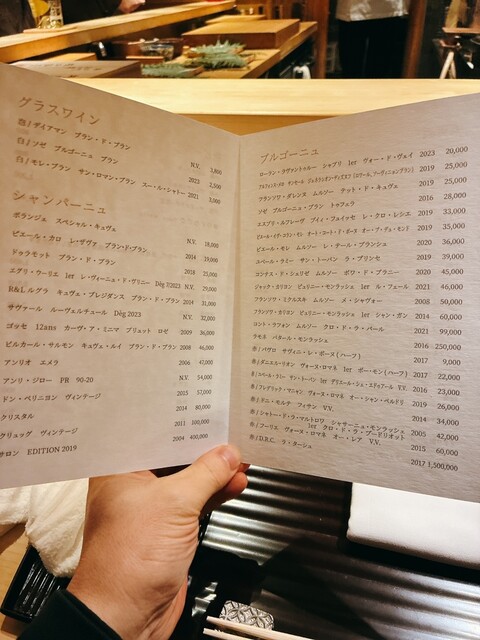 グラスワイン
泡/ ディアマン ブラン・ド・ブラン N.V. 1,800
白/ ソゼ ブルゴーニュ ブラン 2023 2,500
白/ モン・ブラン サン・ロマン・ブラン スー・ル・シャトー 2021 3,000
シャンパーニュ
ボランジェ スペシャル・キュヴェ N.V. 18,000
ピエール・カロ レ・ザヴァ ブラン・ド・ブラン 2014 19,000
ドゥラモット ブラン・ド・ブラン 2018 25,000
エグリ・ウーリエ 1er レ・ヴィーニュ・ド・ヴリニー Dég 2023 N.V. 29,000
R&Lルグラ キュヴェ・プレジダンス ブラン・ド・ブラン 2014 31,000
サヴァール ルーヴェルチュール Dég 2023 N.V. 32,000
ゴッセ 12ans カーヴ・ア・ミニマ ブリュット ロゼ 2009 36,000
ビルカール・サルモン キュヴェ・ルイ ブラン・ド・ブラン 2008 46,000
アンリオ エメラ 2006 42,000
アンリ・ジロー FR 90-20 N.V. 54,000
ドン・ペリニヨン ヴィンテージ 2015 57,000
クリスタル 2014 80,000
クリュッグ ヴィンテージ 2011 100,000
サロン EDITION 2019 2004 400,000
ブルゴーニュ
ローラン・クヴァントゥルー シャブリ 1er ヴォー・ド・ヴェイ 2023 20,000
2019 25,000
フランソワ・ダレンヌ ムルソー テット・ド・キュヴェ 2019 25,000
ソゼ ブルゴーニュ ブラン トゥフェラ 2016 28,000
エスプリ・ルフレーヴ プイィ・フュイッセ レ・クロ・レシエ 2019 33,000
2019 35,000
ピエール・モレ ムルソー レ・テール・ブランシュ 2020 36,000
ユベール・ラミー サン・トーバン ラ・プリンセ 2019 39,000
コンテス・ド・シェリゼ ムルソー ボワ・ド・ブラニー 2020 45,000
ジャック・カリヨン ピュリニー・モンラッシェ 1er ル・フェール 2021 46,000
フランソワ・ミクルスキ ムルソー メ・シャヴォー 2008 50,000
フランソワ・カリヨン ピュリニー・モンラッシェ 1er シャン・ガン 2014 60,000
コント・ラフォン ムルソー クロ・ド・ラ・バール 2021 99,000
ラモネ バタール・モンラッシェ 2016 250,000
赤/ パヴロ サヴィニ・レ・ボーヌ(ハーフ) 2017 9,000
赤/ ダニエル・リオン ヴォーヌ・ロマネ 1er ボー・モン(ハーフ) 2017 22,000
V.V. 2016 23,000
赤/ フレデリック・マニャン ヴォーヌ・ロマネ オー・シャン・ペルドリ 2019 26,000
赤/ ドニ・モルテ フィサン V.V. 2014 34,000
赤/ シャトー・ド・ラ・マルトロワ シャサーニュ・モンラッシェ 1er クロ・ド・ラ・ブードリオット 2005 42,000
赤/ フーリエ ヴォーヌ・ロマネ オー・レア V.V. 2015 60,000
赤/ D.R.C. ラ・ターシュ 2017 1,500,000